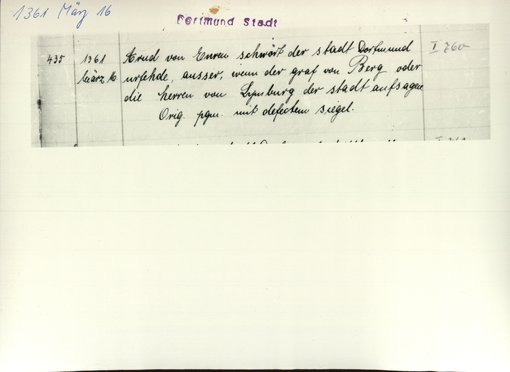 1361 März 16
Dortmund Stadt
435 1361 Arud von Enren schwört der stadt Dortmund I 760
März 16 urfehde, ausser, wenn der graf von Berg oder
die herren von Lymburg der stadt aufsagen
Orig. pgm. mit defectem siegel.